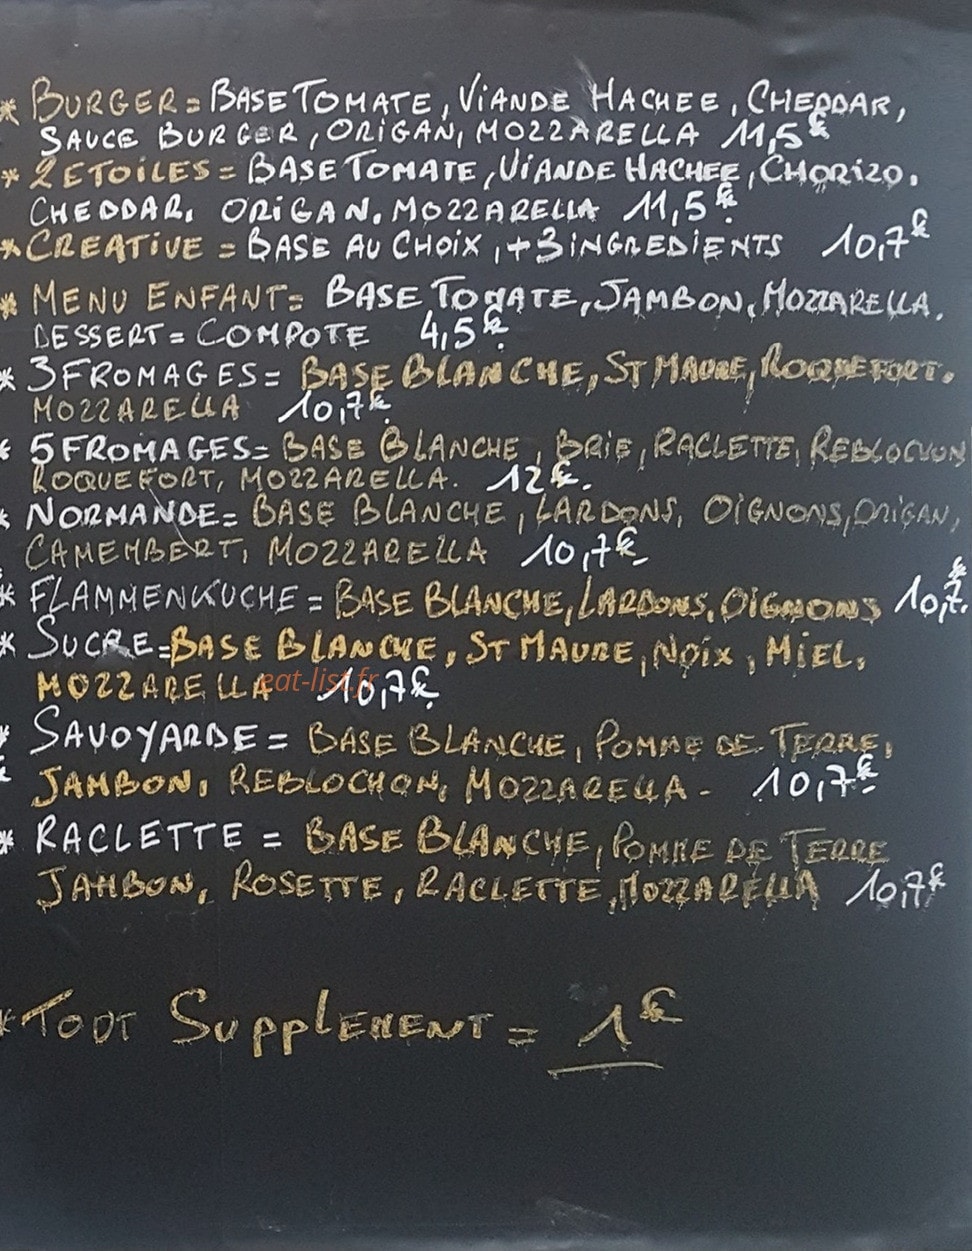 * BURGER = BASE TOMATE, VIANDE HACHEE, CHEDDAR,
SAUCE BURGER, ORIGAN, MOZZARELLA 11,5€
* 2 ETOILES = BASE TOMATE, VIANDE HACHEE, CHORIZO,
CHEDDAR, ORIGAN, MOZZARELLA 11,5€.
* CREATIVE = BASE AU CHOIX, + 3 INGREDIENTS 10,7€
* MENU ENFANT = BASE TOMATE, JAMBON, MOZZARELLA.
DESSERT = COMPOTE 4,5€.
* 3 FROMAGES = BASE BLANCHE, ST MAURE, ROQUEFORT,
MOZZARELLA 10,7€.
* 5 FROMAGES = BASE BLANCHE, BRIE, RACLETTE, REBLOCHON
ROQUEFORT, MOZZARELLA. 12€.
* NORMANDE = BASE BLANCHE, LARDONS, OIGNONS, ORIGAN,
CAMEMBERT, MOZZARELLA 10,7€
* FLAMMENKUCHE = BASE BLANCHE, LARDONS, OIGNONS 10,7€.
* SUCRE = BASE BLANCHE, ST MAURE, NOIX, MIEL,
MOZZARELLA 10,7€.
eat-list.fr
* SAVOYARDE = BASE BLANCHE, POMME DE TERRE,
JAMBON, REBLOCHON, MOZZARELLA - 10,7€
* RACLETTE = BASE BLANCHE, POMME DE TERRE
JAMBON, ROSETTE, RACLETTE, MOZZARELLA 10,7€
* TOUT SUPPLEMENT = 1€